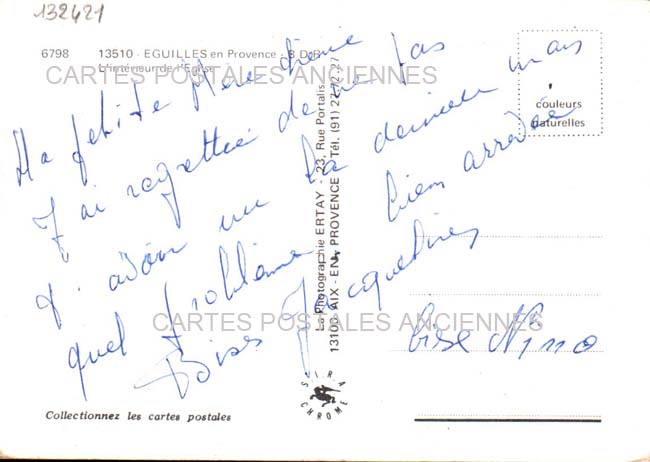 132421
6798 13510 - EGUILLES en Provence - B.D.R.
L'intérieur de l'Eglise
CARTES POSTALES ANCIENNES
couleurs
naturelles
Ma petite Mère
J'ai regretté de ne pas
d'avoir vu la dernière mais
quel problème bien arrivée
Bises Jacqueline
bise Nino
CARTES POSTALES ANCIENNES
La Photographie ERTAY - 23, Rue Portalis
13100 AIX - EN - PROVENCE Tél. (91) 27
SIRA
CHROME
Collectionnez les cartes postales